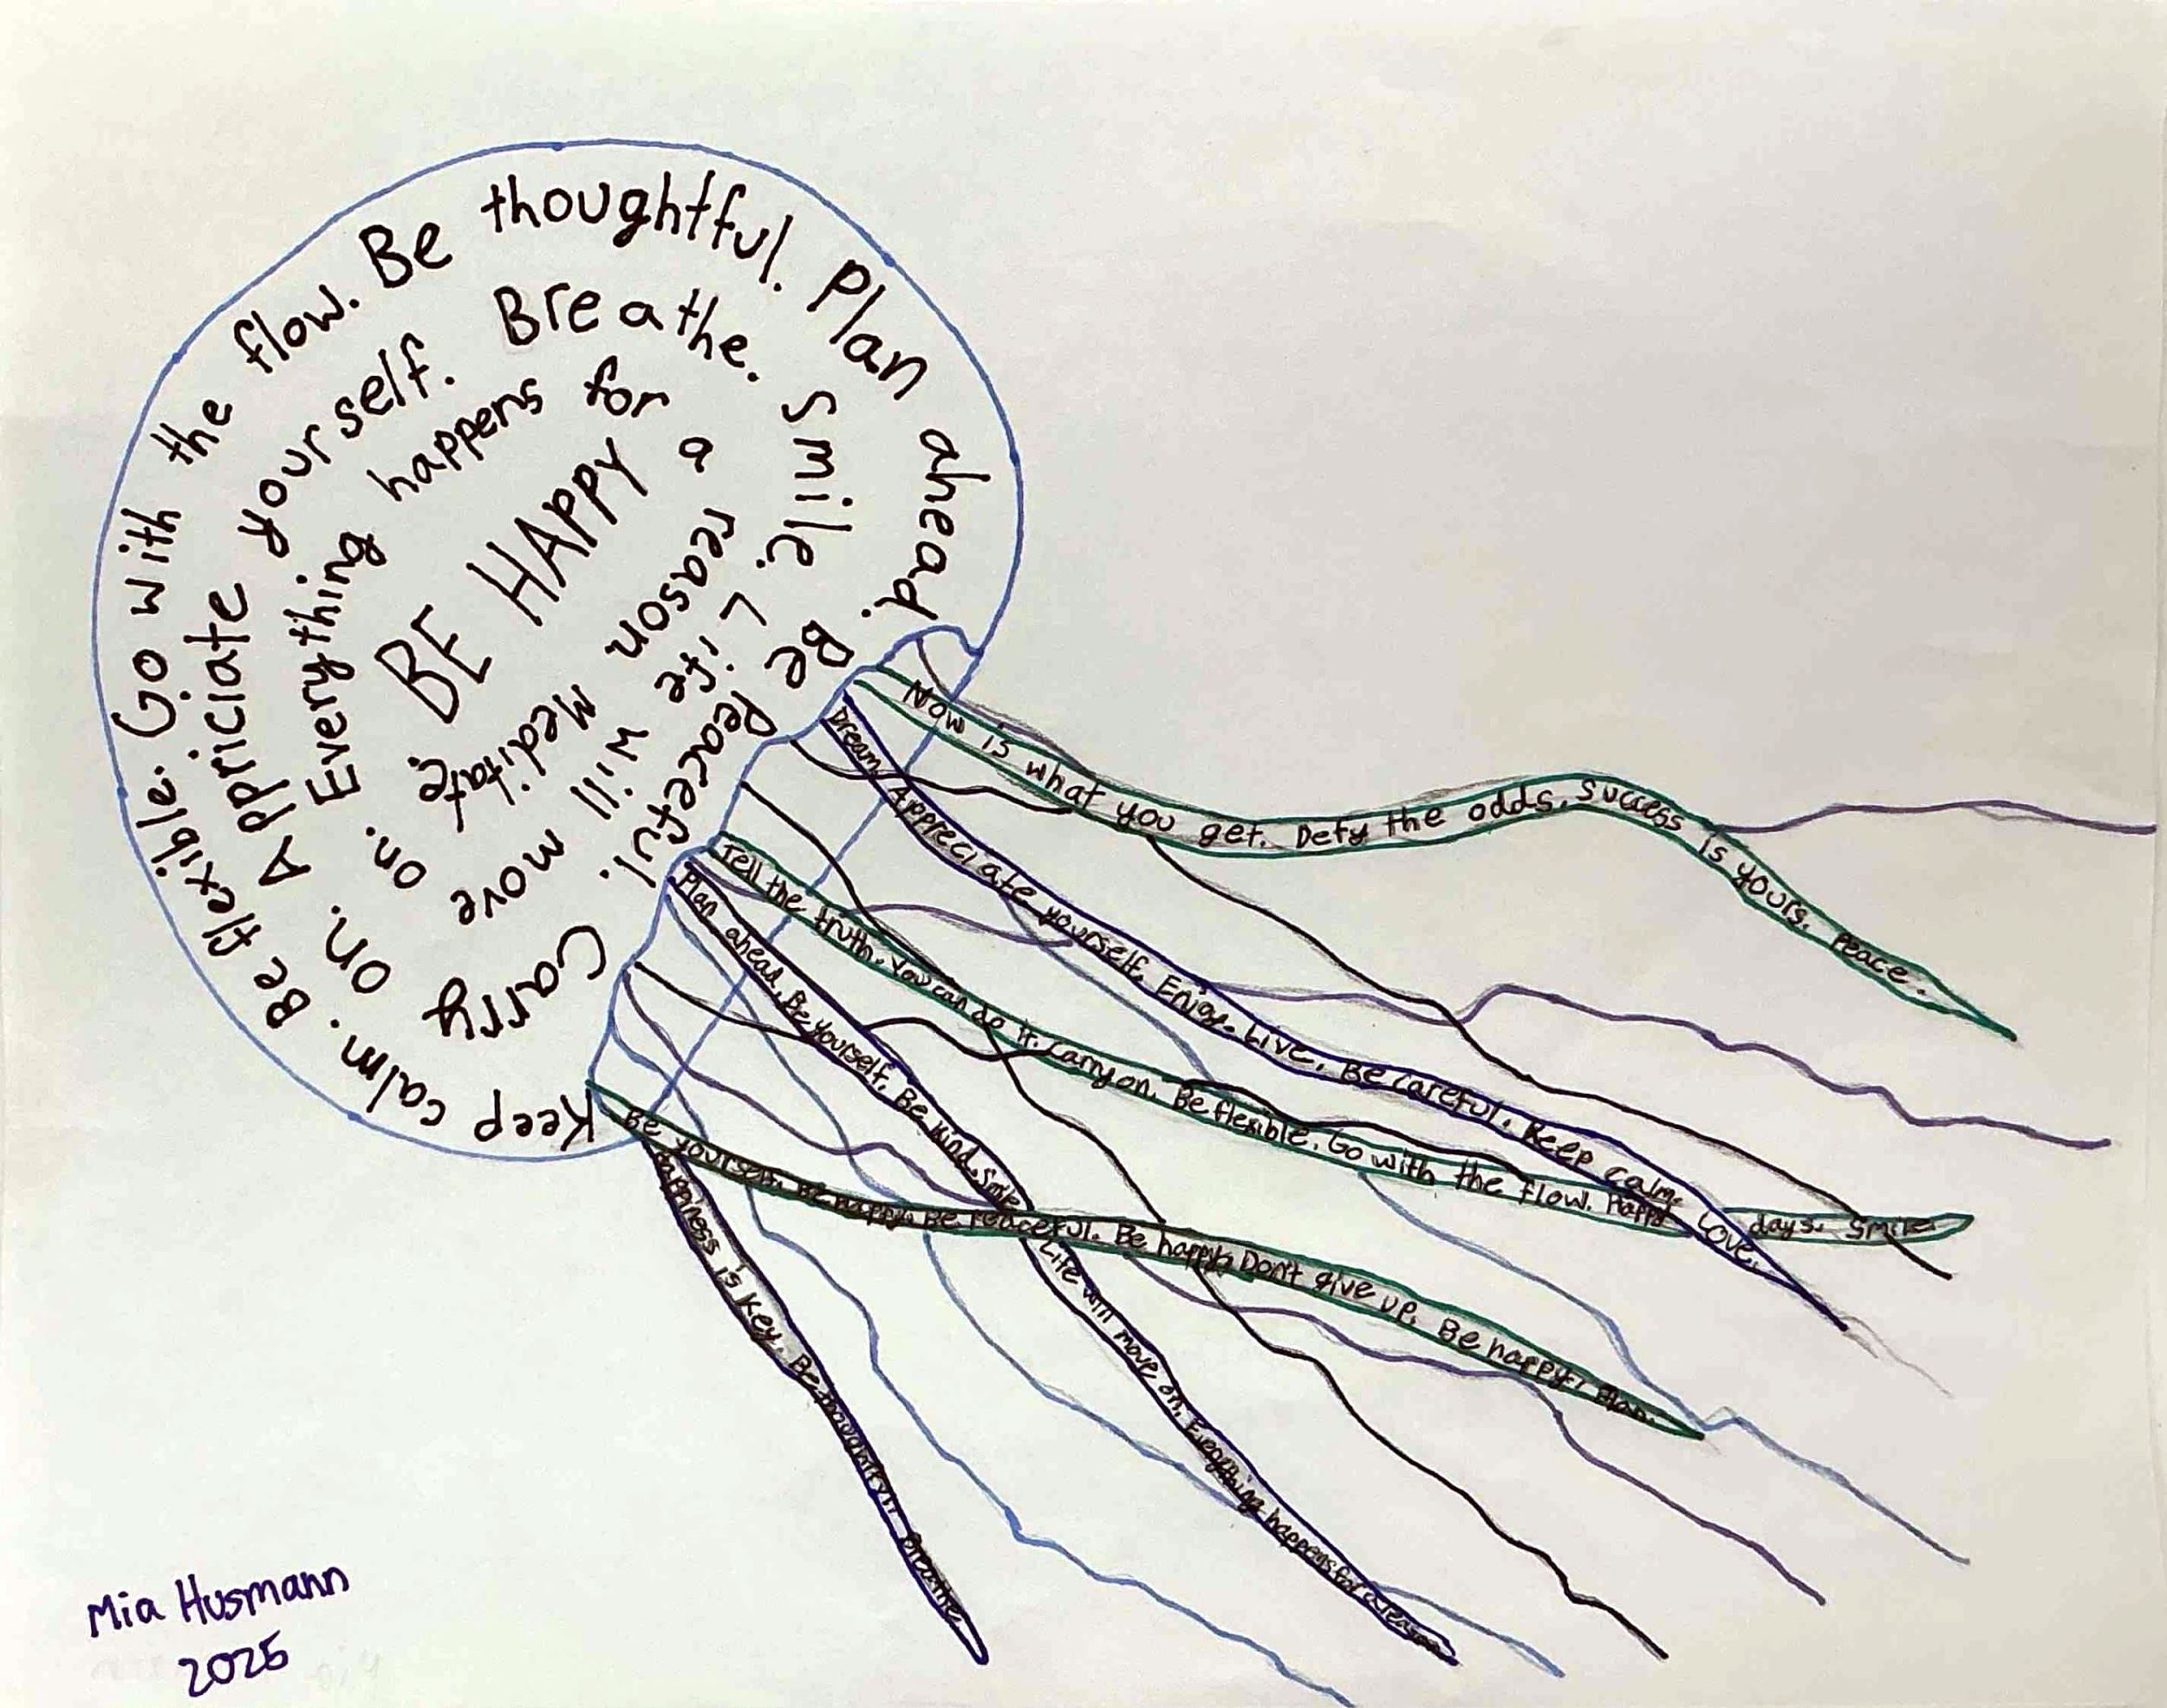 Keep calm. Be flexible. Go with the flow. Be thoughtful. Plan ahead.
Be Peaceful.
Carry on. Appriciate yourself. Breathe. Smile.
Life will move on. Everything happens for a reason
Meditate.
BE HAPPY
Now is what you get. Defy the odds. Success is yours. Peace.
Dream. Appreciate yourself. Enjoy. Live. Be careful. Keep calm. Love.
Tell the truth. You can do it. Carry on. Be flexible. Go with the flow. Happy days. Smile
Plan ahead. Be yourself. Be kind. Smile Life will move on. Everything happens for a reason
Be yourself. Be happy. Be peaceful. Be happy. Don't give up. Be happy. Plan.
Happiness is key. Be thoughtful. Breathe.
Mia Husmann
2025